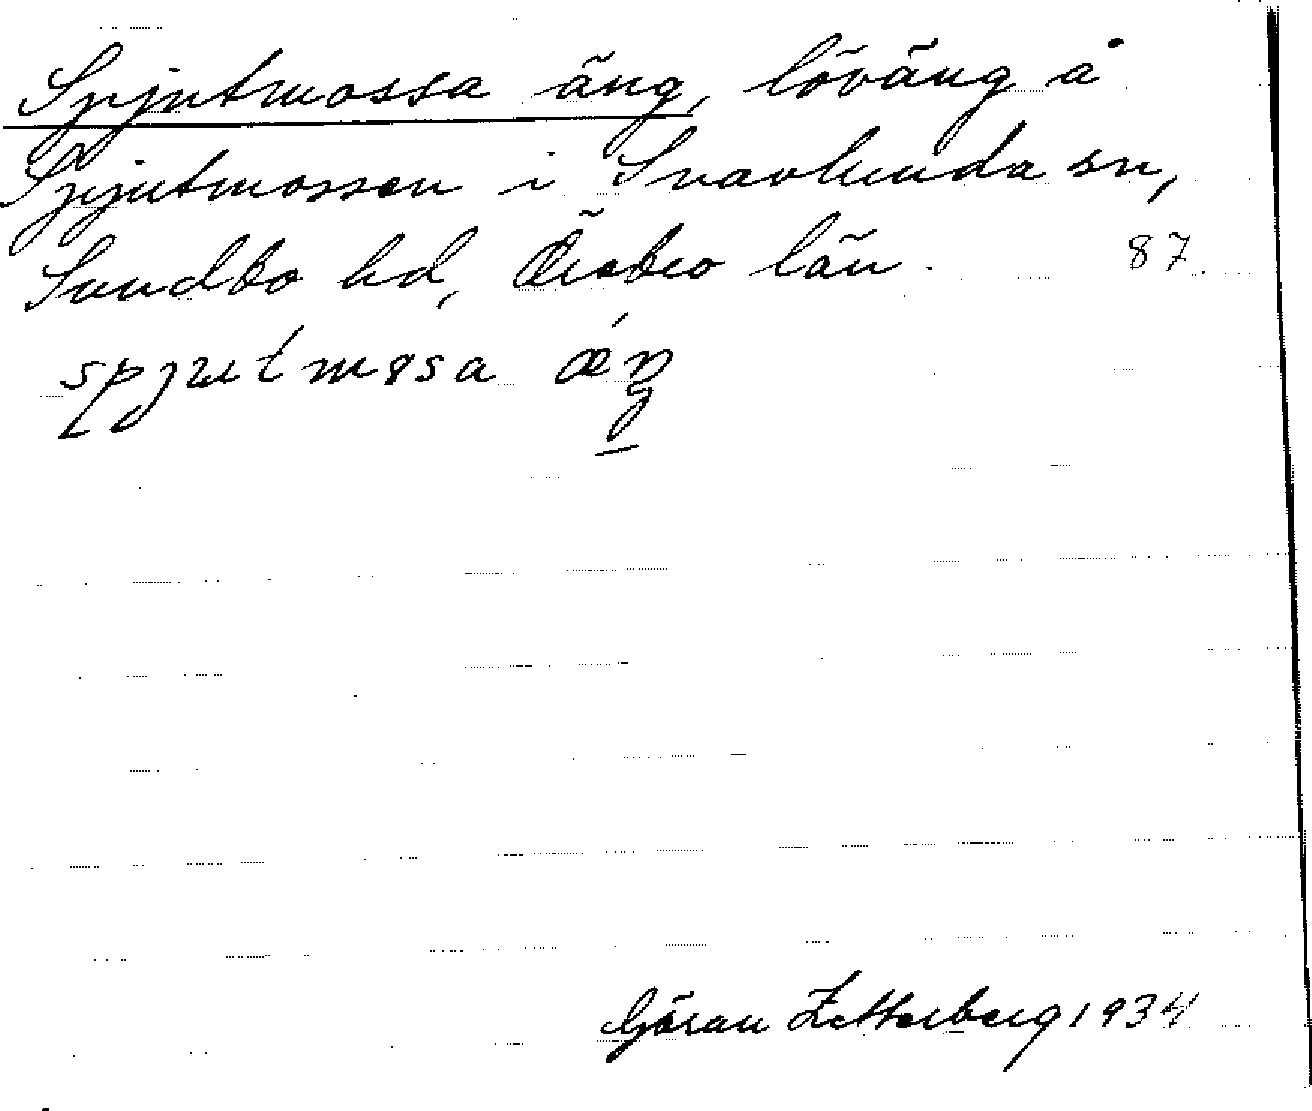 Spjutmossa äng, löväng å
Spjutmossen i Snavlunda sn,
Sundbo hd, Örebro län. 87.
Göran Zetterberg 1934